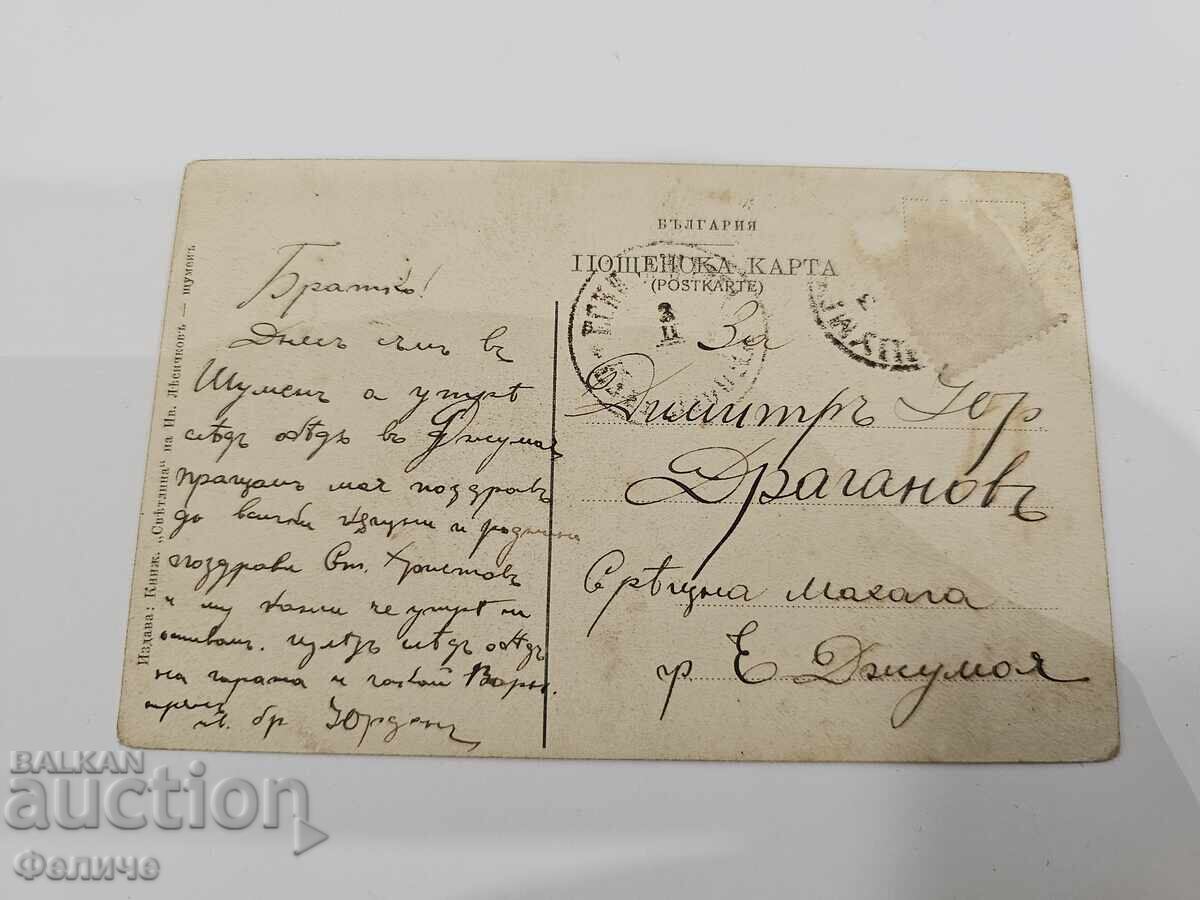 БЪЛГАРИЯ
ПОЩЕНСКА КАРТА
(POSTKARTE)
Издава: Книж. „Свѣтлина“ на Ив. Лѣсичковъ — шуменъ
Братко!
Днесъ съмъ въ
Шуменъ а утрѣ
слѣдъ обѣдъ въ Джумая
пращамъ моя поздравъ
до всички и роднини
поздрави Ст. Христовъ
и му кажи че утрѣ
слѣдъ обѣдъ
на гарата и
бр Юрданъ
За
Димитръ Юр
Драгановъ
Срѣщна Махала
гр Е Джумоя
3
II
ШУМЕ
BALKAN
auction
Феличе